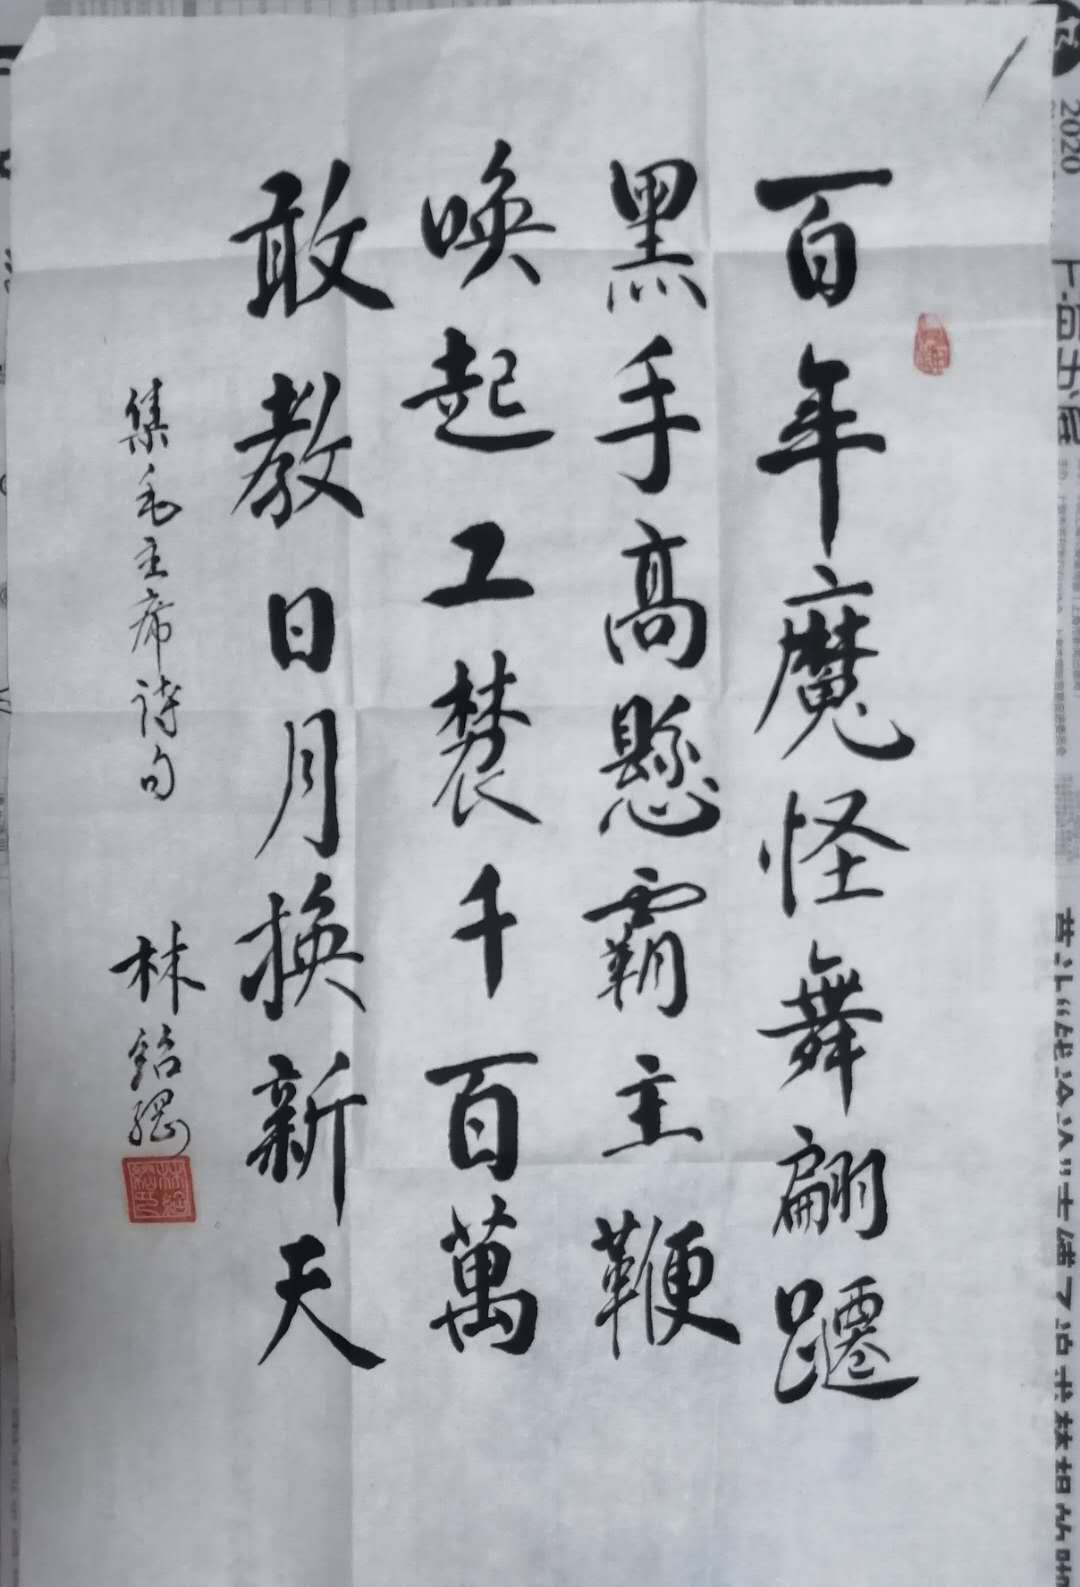 百年魔怪舞翩躚
黑手高懸霸主鞭
喚起工農千百萬
敢教日月換新天
集毛主席诗句
林銘綱
2020
上海书展